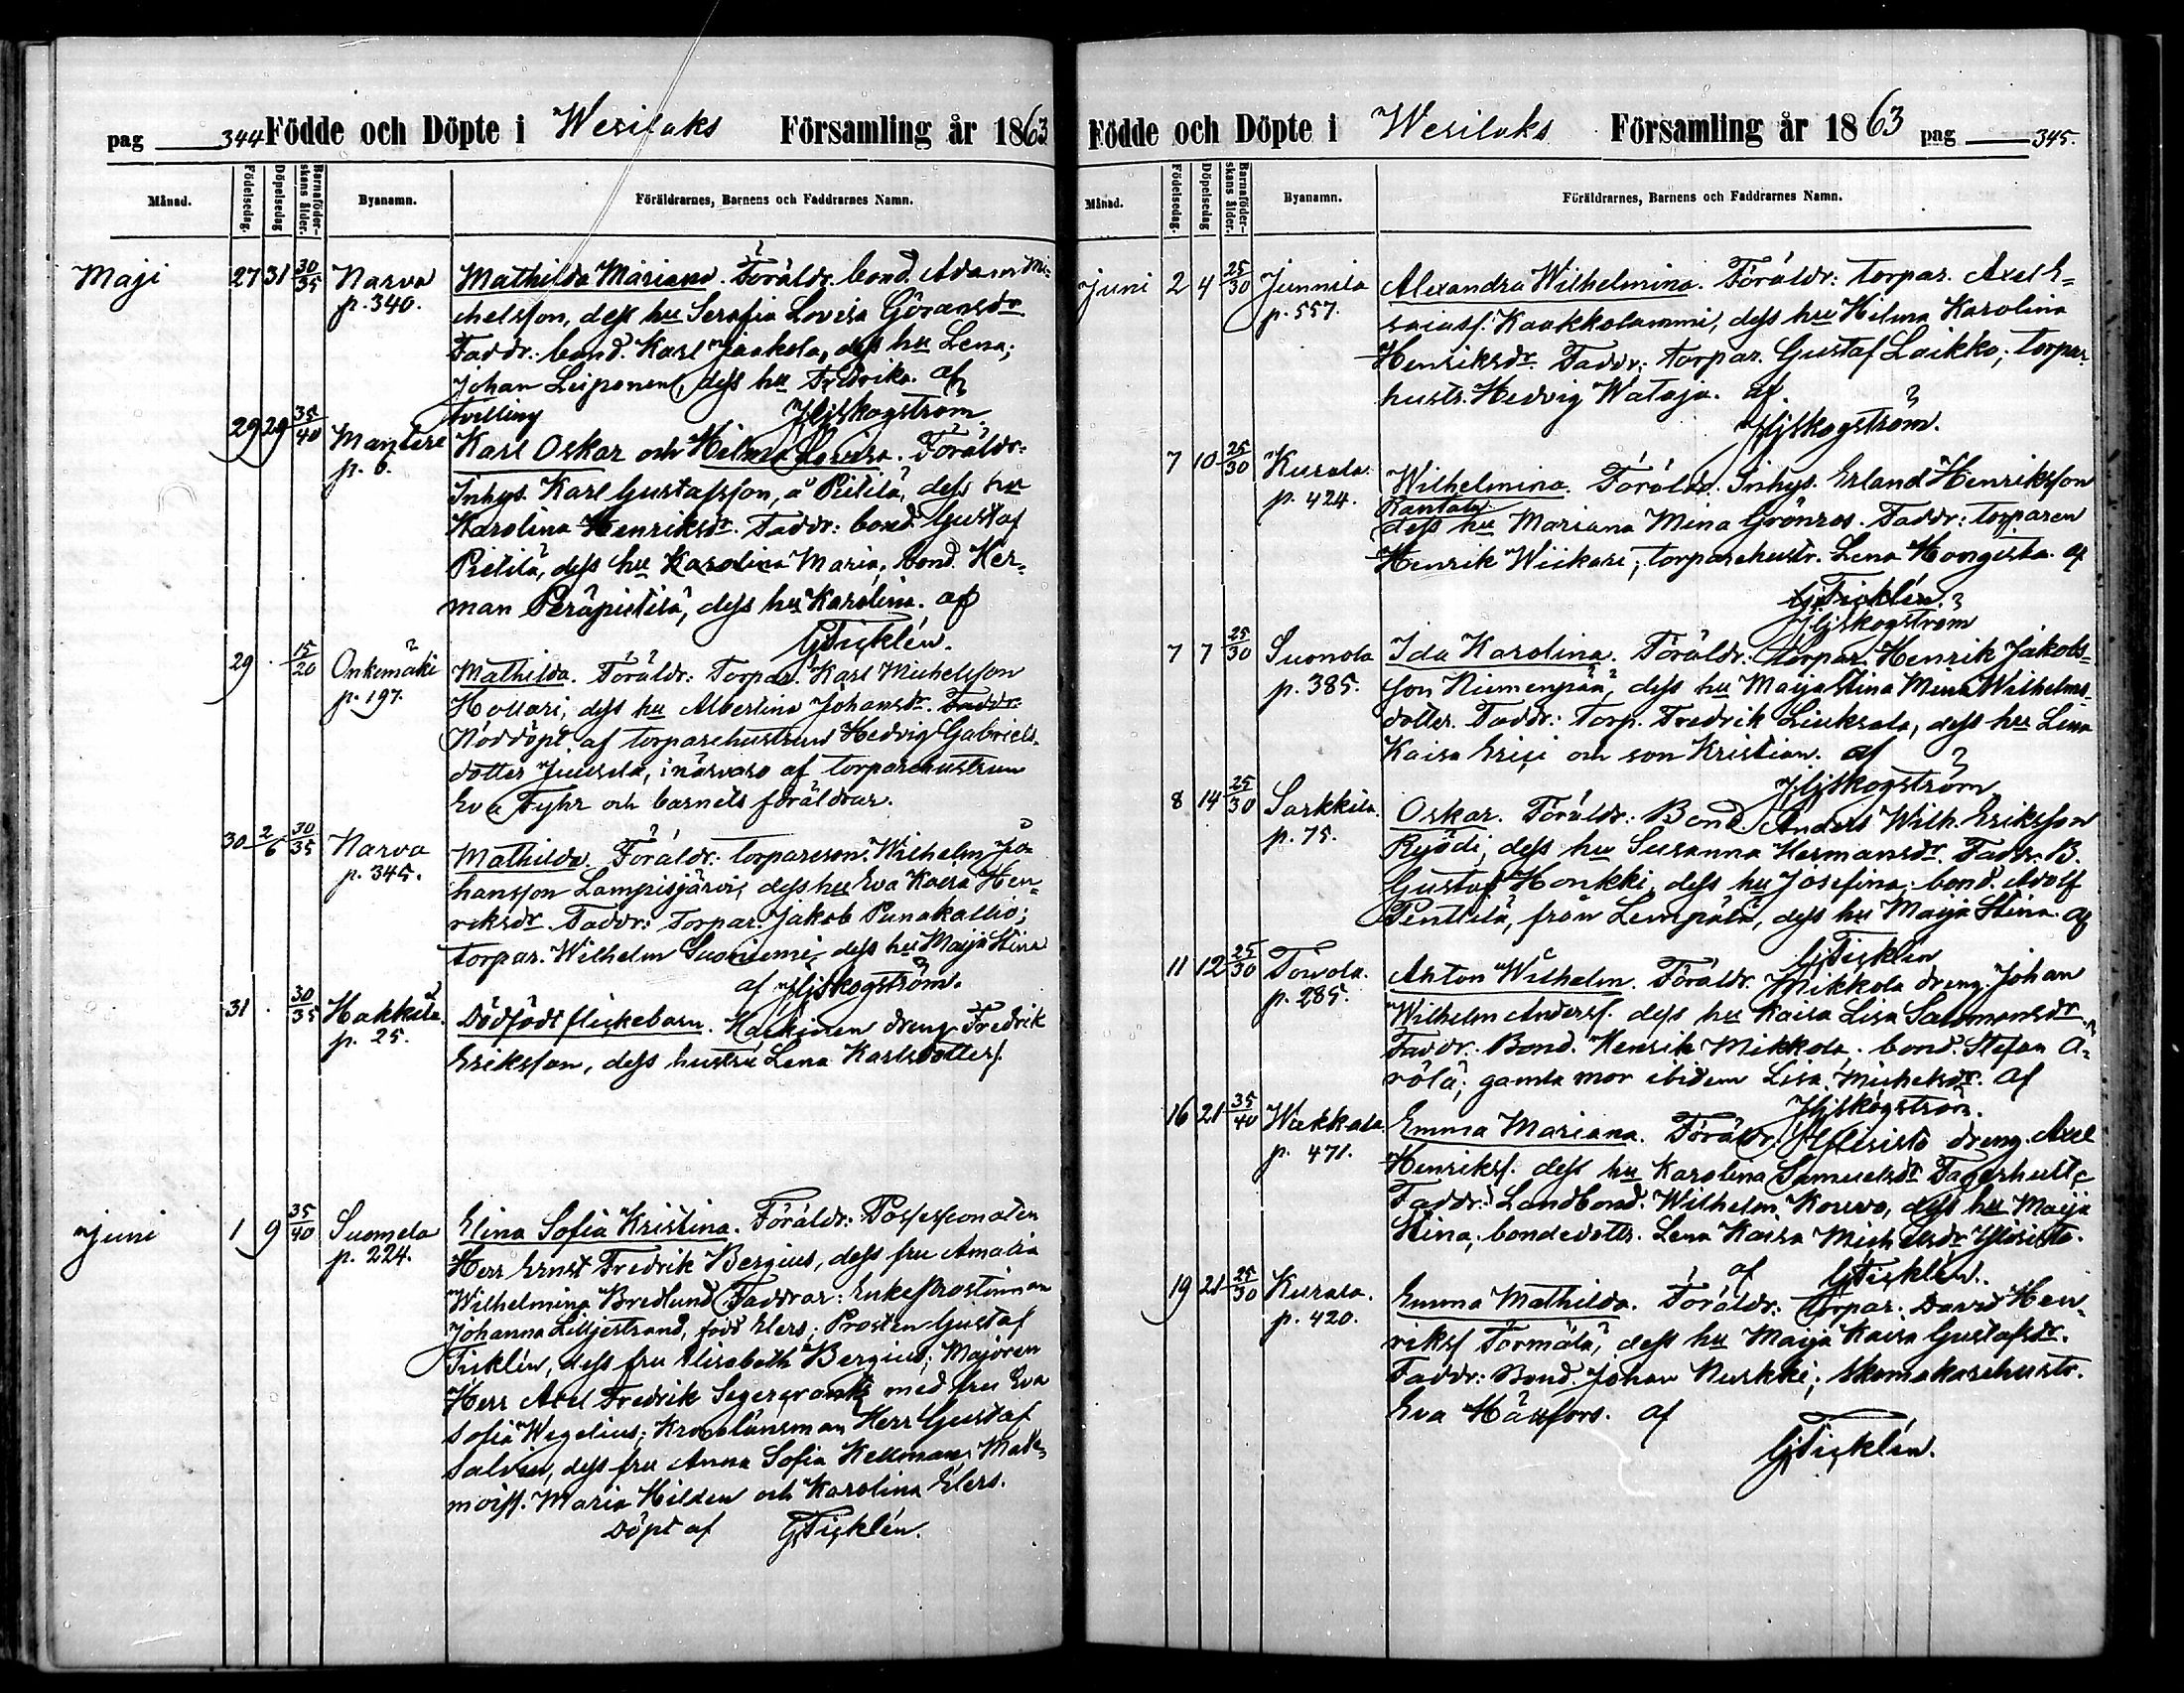 pag 344 Födde och Döpte i Wesilaks Församling år 1863
Månad. Födelsedag. Döpelsedag Barnaföderskans ålder. Byanamn. Föräldrarnes, Barnens och Faddrarnes Namn.
Maji 27 31 30/35 Narva Mathilda Mariana. Föräldr. bond. Adam Mi-
p. 340. chelsson, dess hu Serafia Lovisa Göransdr
Faddr: bond. Karl Jaakola, dess hu Lena;
Johan Leiponen, dess hu Fredrika. af
tvilling HjSkogström.
29 29 35/40 Mantere Karl Oskar och Hilma Lovisa. Föräldr:
p. 6. Inhys. Karl Gustafsson, å Pietilä, dess hu
Karolina Henriksdr. Faddr: bond. Gustaf
Pietilä, dess hu Karolina Maria, bond. Her-
man Peräpietilä, dess hu Karolina. af
GFicklén.
29 . 15/20 Onkemäki Mathilda. Föräldr: Torpar. Karl Michelsson
p. 197. Hollari, dess hu Albertina Johansdr. Faddr:
Nöddöpt af torparehustrun Hedvig Gabriels-
dotter Juusila, i närvaro af torparehustrun
Eva Fyhr och barnets föräldrar.
30 2/6 30/35 Narva Mathilda. Föräldr: torpareson Wilhelm Jo-
p. 345. hansson Lampisjärvi, dess hu Eva Kaisa Hen-
riksdr. Faddr: Torpar. Jakob Punakallio;
torpar. Wilhelm Suoniemi, dess hu Maija Stina
af HjSkogström.
31 . 30/35 Hakkila. Dödfödt flickebarn. Kackinen dreng Fredrik
p. 25. Eriksson, dess hustru Lena Karlsdotter.
Juni 1 9 35/40 Suomela Elina Sofia Kristina. Föräldr: Possessionaten
p. 224. Herr Ernst Fredrik Bergius, dess fru Amalia
Wilhelmina Bredlund Faddrar: Enkeprostinnan
Johanna Liljestrand, född Elers; Prosten Gustaf
Ficklén, dess fru Elisabeth Bergius; Majoren
Herr Axel Fredrik Segercrantz med fru Eva
Sofia Wegelius; Kronolänsman Herr Gustaf
Salvin, dess fru Anna Sofia Kellman; Made-
moiss. Maria Hilden och Karolina Elers.
Döpt af GFicklén.
Födde och Döpte i Wesilaks Församling år 1863 pag 345.
Månad. Födelsedag. Döpelsedag Barnaföderskans ålder. Byanamn. Föräldrarnes, Barnens och Faddrarnes Namn.
Juni 2 4 25/30 Junnila Alexandra Wilhelmina. Föräldr: torpar. Axel E-
p. 557. saiass. Kaakkolammi, dess hu Hilma Karolina
Henriksdr. Faddr: torpar. Gustaf Laikko; torpar-
hustr. Hedvig Wataja. af.
HjSkogström.
7 10 25/30 Kurala Wilhelmina. Föräldr. Inhys. Erland Henriksson
p. 424. Rantala
dess hu Mariana Mina Grönros. Faddr: torparen
Henrik Wiikari; torparehustr. Lena Hongista. af
GFicklén.
HjSkogström
7 7 25/30 Suonola Ida Karolina. Föräldr: torpar. Henrik Jakobs-
p. 385. son Niemenpää, dess hu Maija Stina Mina Wilhelms-
dotter. Faddr: Torp. Fredrik Liuksala, dess hu Lena
Kaisa Erici och son Kristian. af
HjSkogström
8 14 25/30 Sarkkila. Oskar. Föräldr: Bond. Anders Wilh. Eriksson
p. 75. Ryödi, dess hu Susanna Hermansdr. Faddr. B.
Gustaf Honkki, dess hu Josefina; bond. Adolf
Penttilä, från Lempälä, dess hu Maija Stina. af
GFicklén
11 12 25/30 Toivola. Anton Wilhelm. Föräldr. Mikkola dreng Johan
p. 285. Wilhelm Anderss. dess hu Kaisa Lisa Salomonsdr.
Faddr. Bond. Henrik Mikkola. bond. Stefan A-
rölä; gamla mor ibidem Lisa Michelsdr. af
HjSkogström.
16 21 35/40 Wakkala. Emma Mariana. Föräldr: Ylisisto dreng Axel
p. 471. Henrikss. dess hu Karolina Samuelsdr Fagerhult
Faddr: Landbond. Wilhelm Kouvo, dess hu Maija
Stina; bondedottr. Lena Kaisa Michelsdr Ylisisto.
af GFicklén.
19 21 25/30 Kurala. Emma Mathilda. Föräldr: torpar. David Hen-
p. 420. rikss Tormälä, dess hu Maija Kaisa Gustafsdr.
Faddr: Bond. Johan Kurkki; Skomakarehustr.
Eva Hällfors. af
GFicklén.